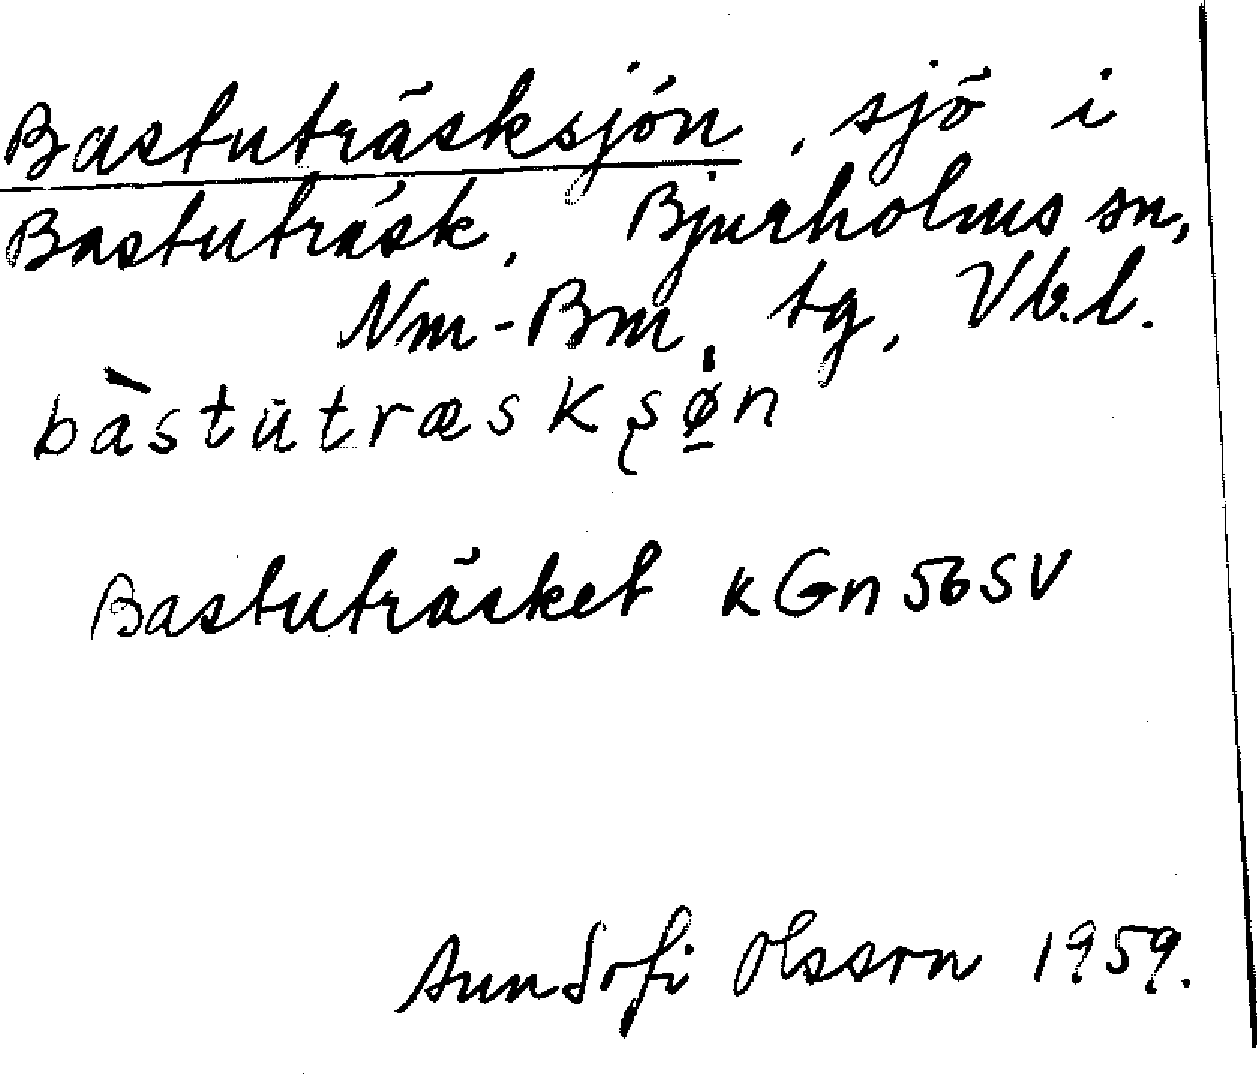 Bastuträsksjön, sjö i
Bastuträsk, Bjurholms sn,
Nm-Bm, tg, Vb.l.
bàstūtræskʂø̱n
Bastuträsket kGn56SV
Ann Sofi Olsson 1959.